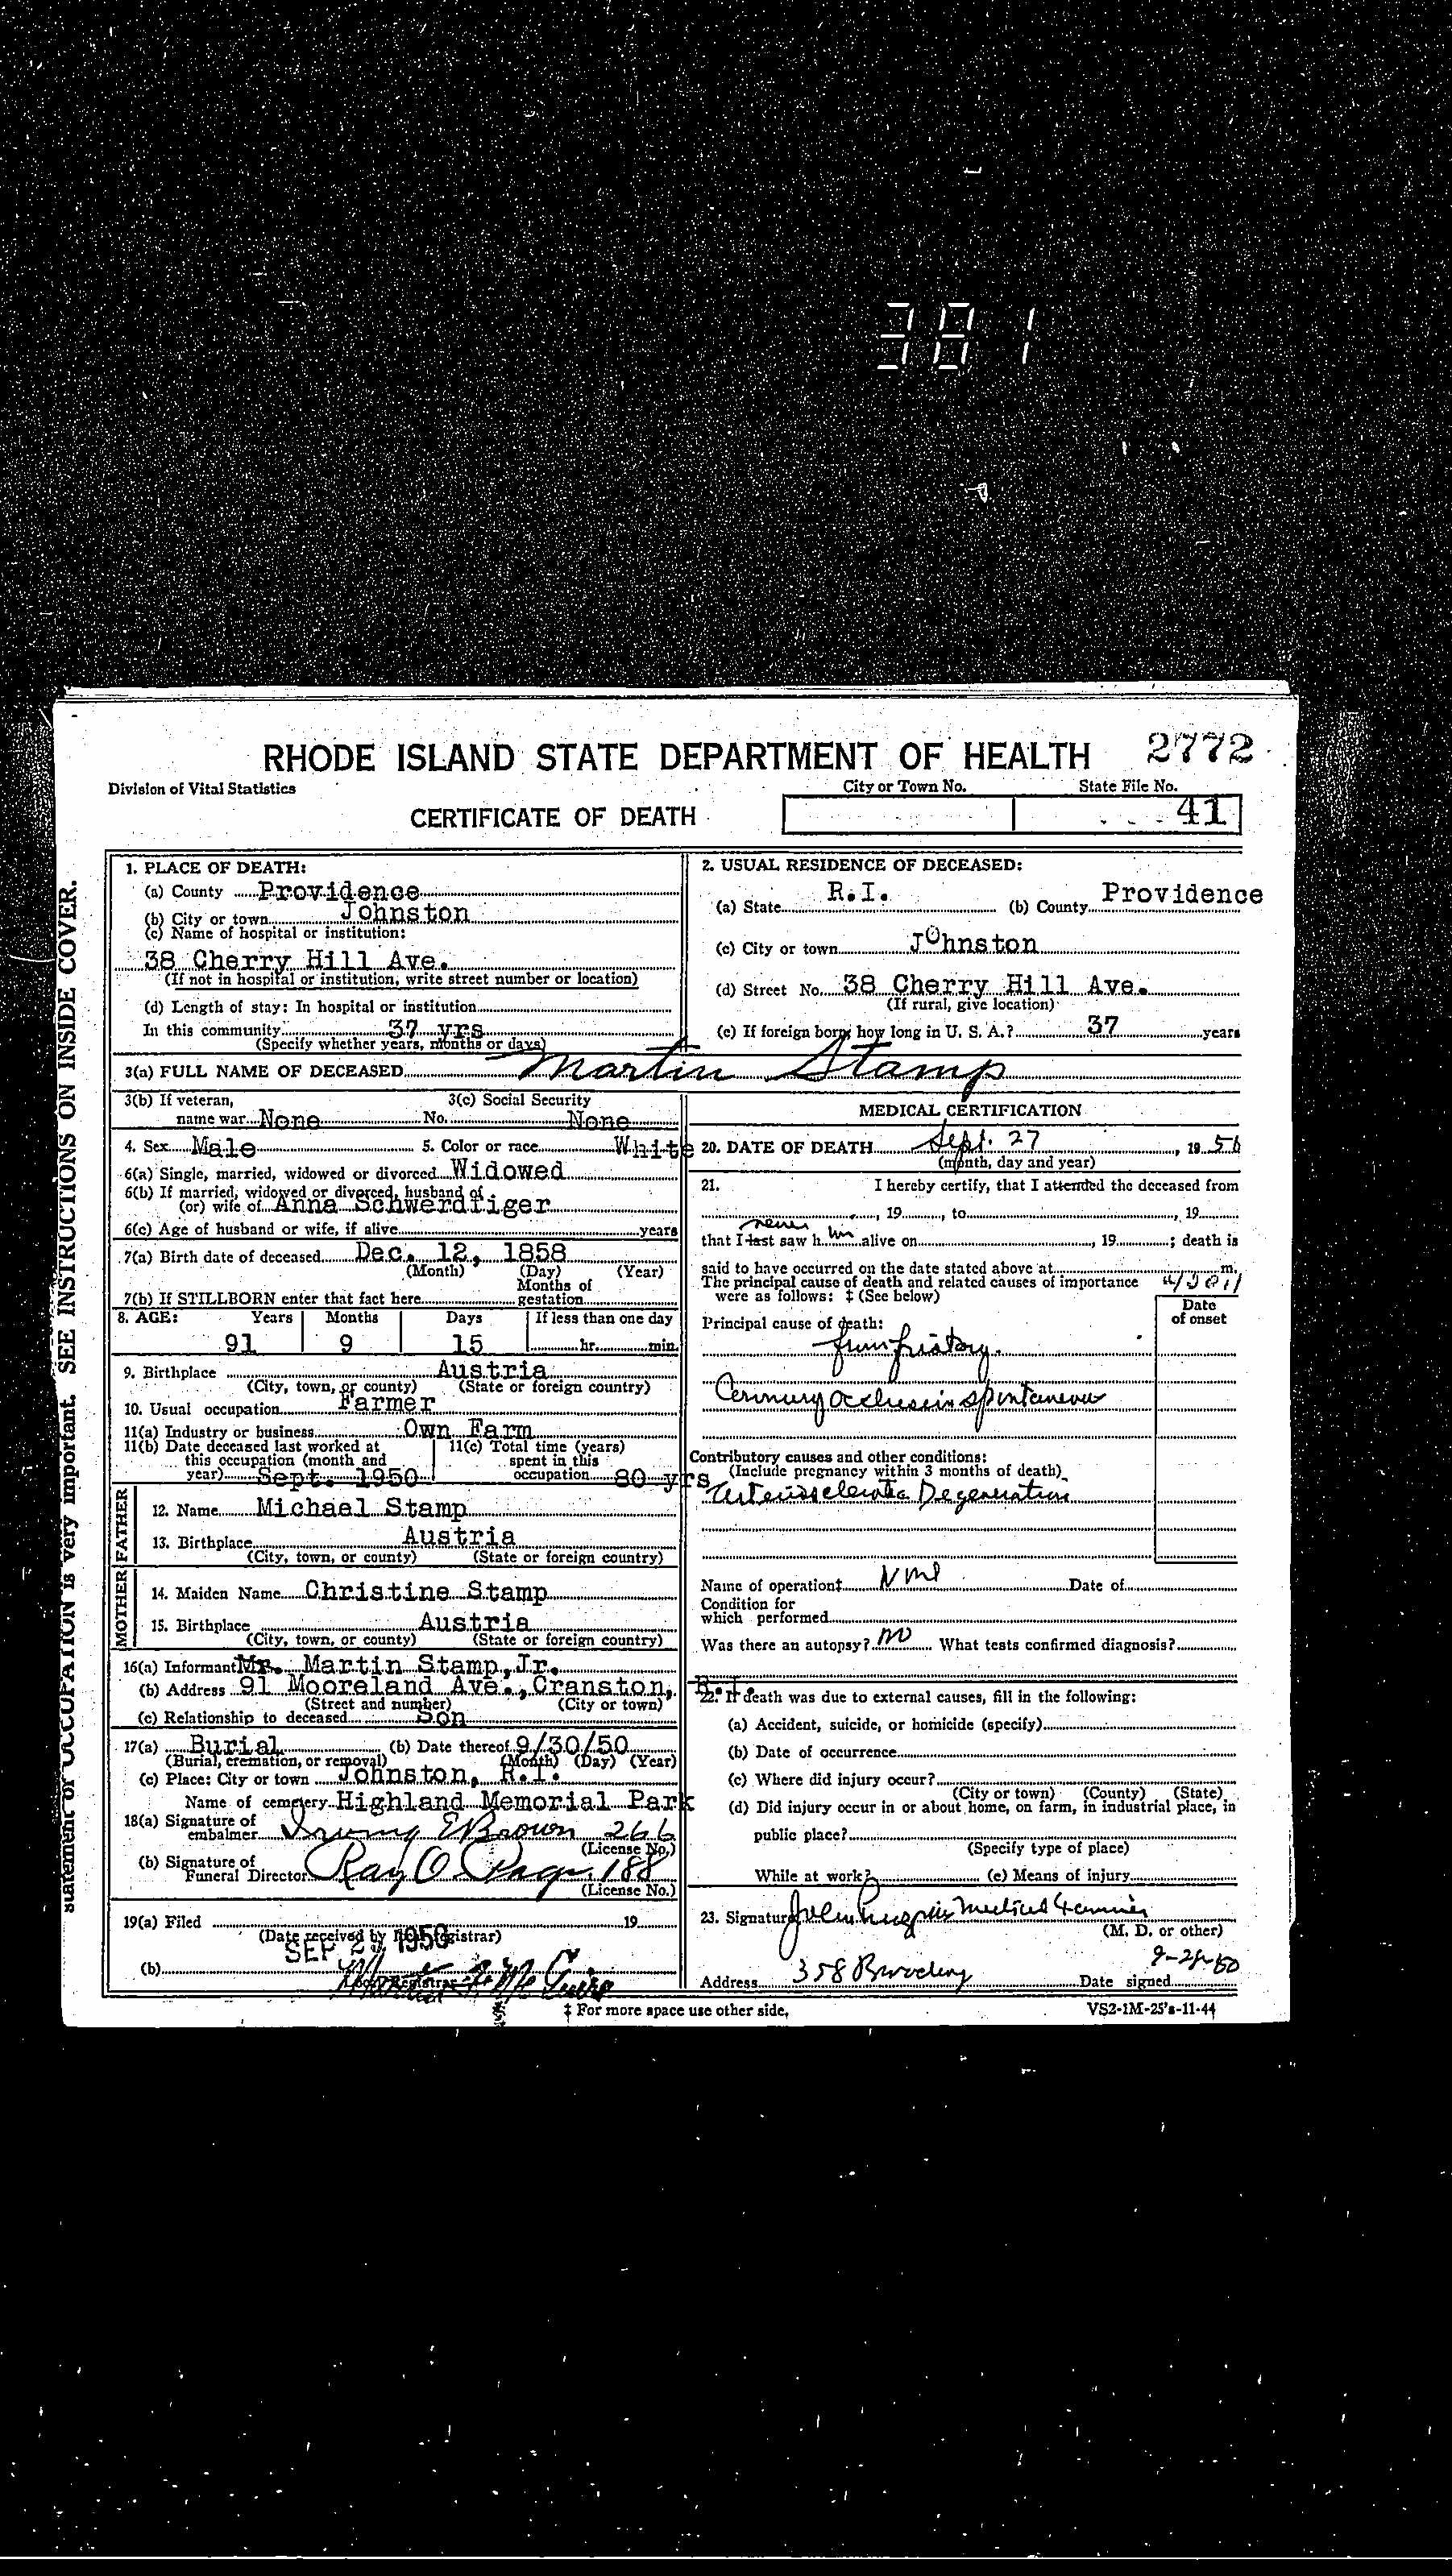 381
RHODE ISLAND STATE DEPARTMENT OF HEALTH 2772
Division of Vital Statistics City or Town No. State File No.
CERTIFICATE OF DEATH 41
SEE INSTRUCTIONS ON INSIDE COVER.
statement of OCCUPATION is very important.
1. PLACE OF DEATH:
(a) County Providence
(b) City or town Johnston
(c) Name of hospital or institution:
38 Cherry Hill Ave.
(If not in hospital or institution, write street number or location)
(d) Length of stay: In hospital or institution
In this community 37 yrs
(Specify whether years, months or days)
2. USUAL RESIDENCE OF DECEASED:
(a) State R.I. (b) County Providence
(c) City or town JOhnston
(d) Street No. 38 Cherry Hill Ave.
(If rural, give location)
(e) If foreign born, how long in U. S. A.? 37 years
3(a) FULL NAME OF DECEASED Martin Stamp
3(b) If veteran, 3(c) Social Security
name war None No. None
4. Sex Male 5. Color or race White
6(a) Single, married, widowed or divorced Widowed
6(b) If married, widowed or divorced, husband of
(or) wife of Anna Schwerdfiger
6(c) Age of husband or wife, if alive years
7(a) Birth date of deceased Dec. 12, 1858
(Month) (Day) (Year)
Months of
7(b) If STILLBORN enter that fact here gestation
8. AGE: Years Months Days If less than one day
91 9 15 hr. min.
9. Birthplace Austria
(City, town, or county) (State or foreign country)
10. Usual occupation Farmer
11(a) Industry or business Own Farm
11(b) Date deceased last worked at 11(c) Total time (years)
this occupation (month and spent in this
year) Sept. 1950 occupation 80 yrs
FATHER
12. Name Michael Stamp
13. Birthplace Austria
(City, town, or county) (State or foreign country)
MOTHER
14. Maiden Name Christine Stamp
15. Birthplace Austria
(City, town, or county) (State or foreign country)
16(a) Informant Mr. Martin Stamp, Jr.
(b) Address 91 Mooreland Ave., Cranston, R.I.
(Street and number) (City or town)
(c) Relationship to deceased Son
17(a) Burial (b) Date thereof 9/30/50
(Burial, cremation, or removal) (Month) (Day) (Year)
(c) Place: City or town Johnston, R.I.
Name of cemetery Highland Memorial Park
18(a) Signature of
embalmer Irving E Brown 266
(License No.)
(b) Signature of
Funeral Director Ray O 188
(License No.)
19(a) Filed 19
(Date received by local registrar)
SEP 1950
(b)
‡ For more space use other side.
MEDICAL CERTIFICATION
20. DATE OF DEATH Sept. 27, 1950
(month, day and year)
21. I hereby certify, that I attended the deceased from
, 19 , to , 19
never
that I last saw h im alive on , 19 ; death is
said to have occurred on the date stated above at m.
The principal cause of death and related causes of importance
were as follows: ‡ (See below)
Date
of onset
Principal cause of death:
from history.
Coronary occlusion spontaneous
Contributory causes and other conditions:
(Include pregnancy within 3 months of death)
Arteriosclerotic Degeneration
Name of operation‡ None Date of
Condition for
which performed
Was there an autopsy? no What tests confirmed diagnosis?
22. If death was due to external causes, fill in the following:
(a) Accident, suicide, or homicide (specify)
(b) Date of occurrence
(c) Where did injury occur?
(City or town) (County) (State)
(d) Did injury occur in or about home, on farm, in industrial place, in
public place?
(Specify type of place)
While at work? (e) Means of injury
23. Signature Medical Examiner
(M. D. or other)
Address 358 Broadway Date signed
VS2-1M-25's-11-44